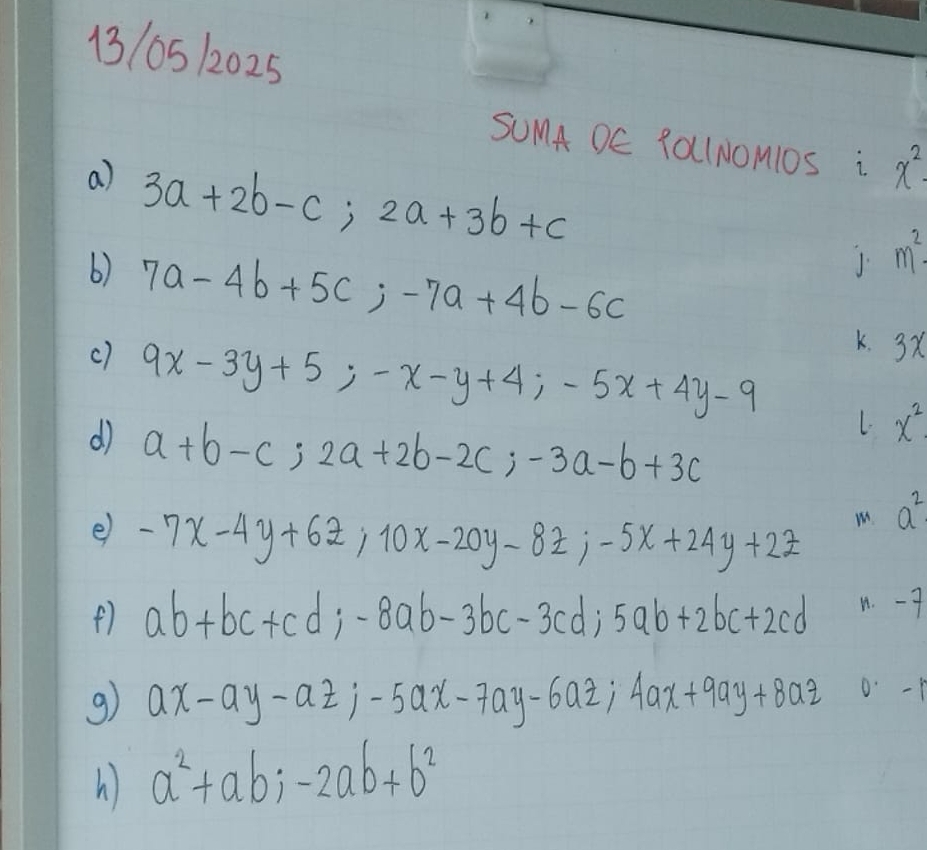 13/05/2025
SUMA DE POLINOMIOS
a) 3a+2b-c ; 2a+3b+c
b) 7a-4b+5c ; -7a+4b-6c
c) 9x-3y+5 ; -x-y+4 ; -5x+4y-9
d) a+b-c ; 2a+2b-2c ; -3a-b+3c
e) -7x-4y+6z ; 10x-20y-8z ; -5x+24y+2z
f) ab+bc+cd ; -8ab-3bc-3cd ; 5ab+2bc+2cd
g) ax-ay-az ; -5ax-7ay-6az ; 4ax+9ay+8az
h) a²+ab ; -2ab+b²
i. x²-
j. m²-
k. 3x
l. x²-
m. a²-
n. -7
o. -